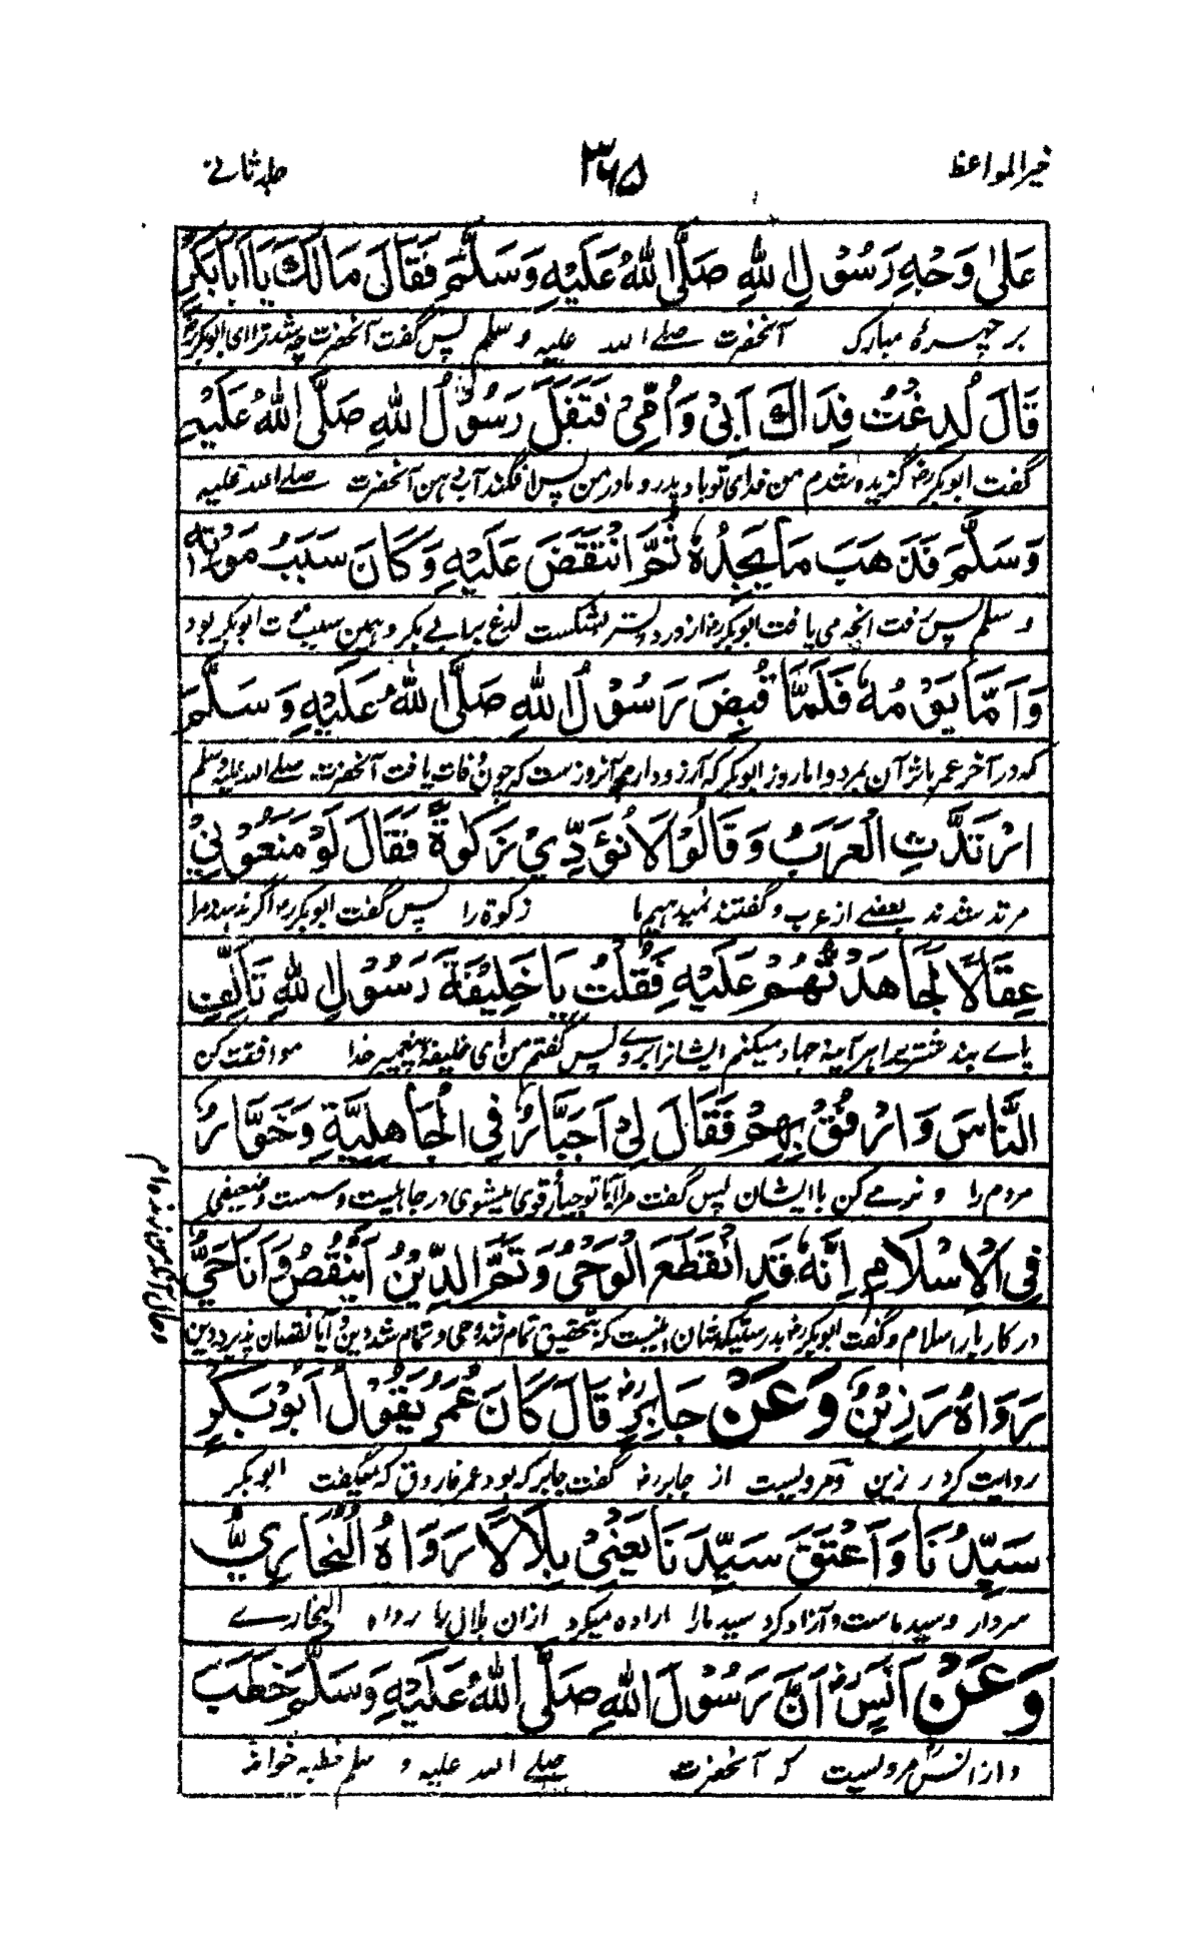 خیر المواعظ ۳۶۵ جلد ثانے
عَلىٰ وَجْهِ رَسُوْلِ اللهِ صَلَّى اللهُ عَلَيْهِ وَسَلَّمَ فَقَالَ مَا لَكَ يَا اَبَا بَكَرٍ
بر چہرۂ مبارک آنحضرت صلے اللہ علیہ و سلم پس گفت آنحضرت چہ شد ترا ای ابوبکر رض
قَالَ لُدِغْتُ فِدَاكَ اَبِيْ وَاُمِّيْ فَتَفَلَ رَسُوْلُ اللهِ صَلَّى اللهُ عَلَيْهِ
گفت ابوبکر رض گزیده شدم من فدای تو باد پدر و مادر من پس افگند آب دہن آنحضرت صلے اللہ علیہ
وَسَلَّمَ فَذَهَبَ مَا يَجِدُهٗ ثُمَّ انْتَقَضَ عَلَيْهِ وَكَانَ سَبَبُ مَوْتِهٖ
و سلم پس رفت انچہ می یافت ابوبکر رض از درد پستر بشکست لدغ برابی بکر و ہمین سبب موت ابوبکر بود
وَاَمَّا يَوْمُهٗ فَلَمَّا قُبِضَ رَسُوْلُ اللهِ صَلَّى اللهُ عَلَيْهِ وَسَلَّمَ
کہ در آخر عمر باثر آن بمرد و اما روز ابوبکر کہ آرزو دارم آنروزست کہ چون وفات یافت آنحضرت صلے اللہ علیہ وسلم
ارْتَدَّتِ الْعَرَبُ وَقَالُوْا لَا نُؤَدِّيْ زَكٰوةً فَقَالَ لَوْ مَنَعُوْنِيْ
مرتد شدند بعضے از عرب و گفتند نمیدہیم ما زکوة را پس گفت ابوبکر رض اگر ندہند مرا
عِقَالًا لَجَاهَدْتُهُمْ عَلَيْهِ فَقُلْتُ يَا خَلِيْفَةَ رَسُوْلِ اللهِ تَاَلَّفِ
پاے بند شتر را ہر آینہ جہاد میکنم ایشانرا بروے پس گفتم من ای خلیفۂ پیغمبر خدا موافقت کن
النَّاسَ وَارْفُقْ بِهِمْ فَقَالَ لِيْ اَجَبَّارٌ فِي الْجَاهِلِيَّةِ وَخَوَّارٌ
مردم را و نرمے کن با ایشان پس گفت مرا آیا تو جبار و قوی میشوی در جاہلیت و سست و ضعیفی
فِي الْاِسْلَامِ اِنَّهٗ قَدِ انْقَطَعَ الْوَحْيُ وَتَمَّ الدِّيْنُ اَيَنْقُصُ وَاَنَا حَيٌّ
در کار بار اسلام و گفت ابوبکر رض بدرستیکہ شان اینست کہ بتحقیق تمام شد وحی و تمام شد دین آیا نقصان پذیرد دین
رَوَاهُ رَزِيْنٌ وَعَنْ جَابِرٍ رض قَالَ كَانَ عُمَرُ يَقُوْلُ اَبُوْ بَكَرٍ
روایت کرد رزین و مرویست از جابر رض گفت جابر کہ بود عمر فاروق کہ میگفت ابوبکر
سَيِّدُنَا وَاَعْتَقَ سَيِّدَنَا يَعْنِيْ بِلَالًا رَوَاهُ الْبُخَارِيُّ
سردار و سید ماست و آزاد کرد سید مارا ارادہ میکرد ازان بلال را رواہ البخارے
وَعَنْ اَنَسٍ رض اَنَّ رَسُوْلَ اللهِ صَلَّى اللهُ عَلَيْهِ وَسَلَّمَ خَطَبَ
و از انس رض مرویست کہ آنحضرت صلے اللہ علیہ و سلم خطبہ خواند